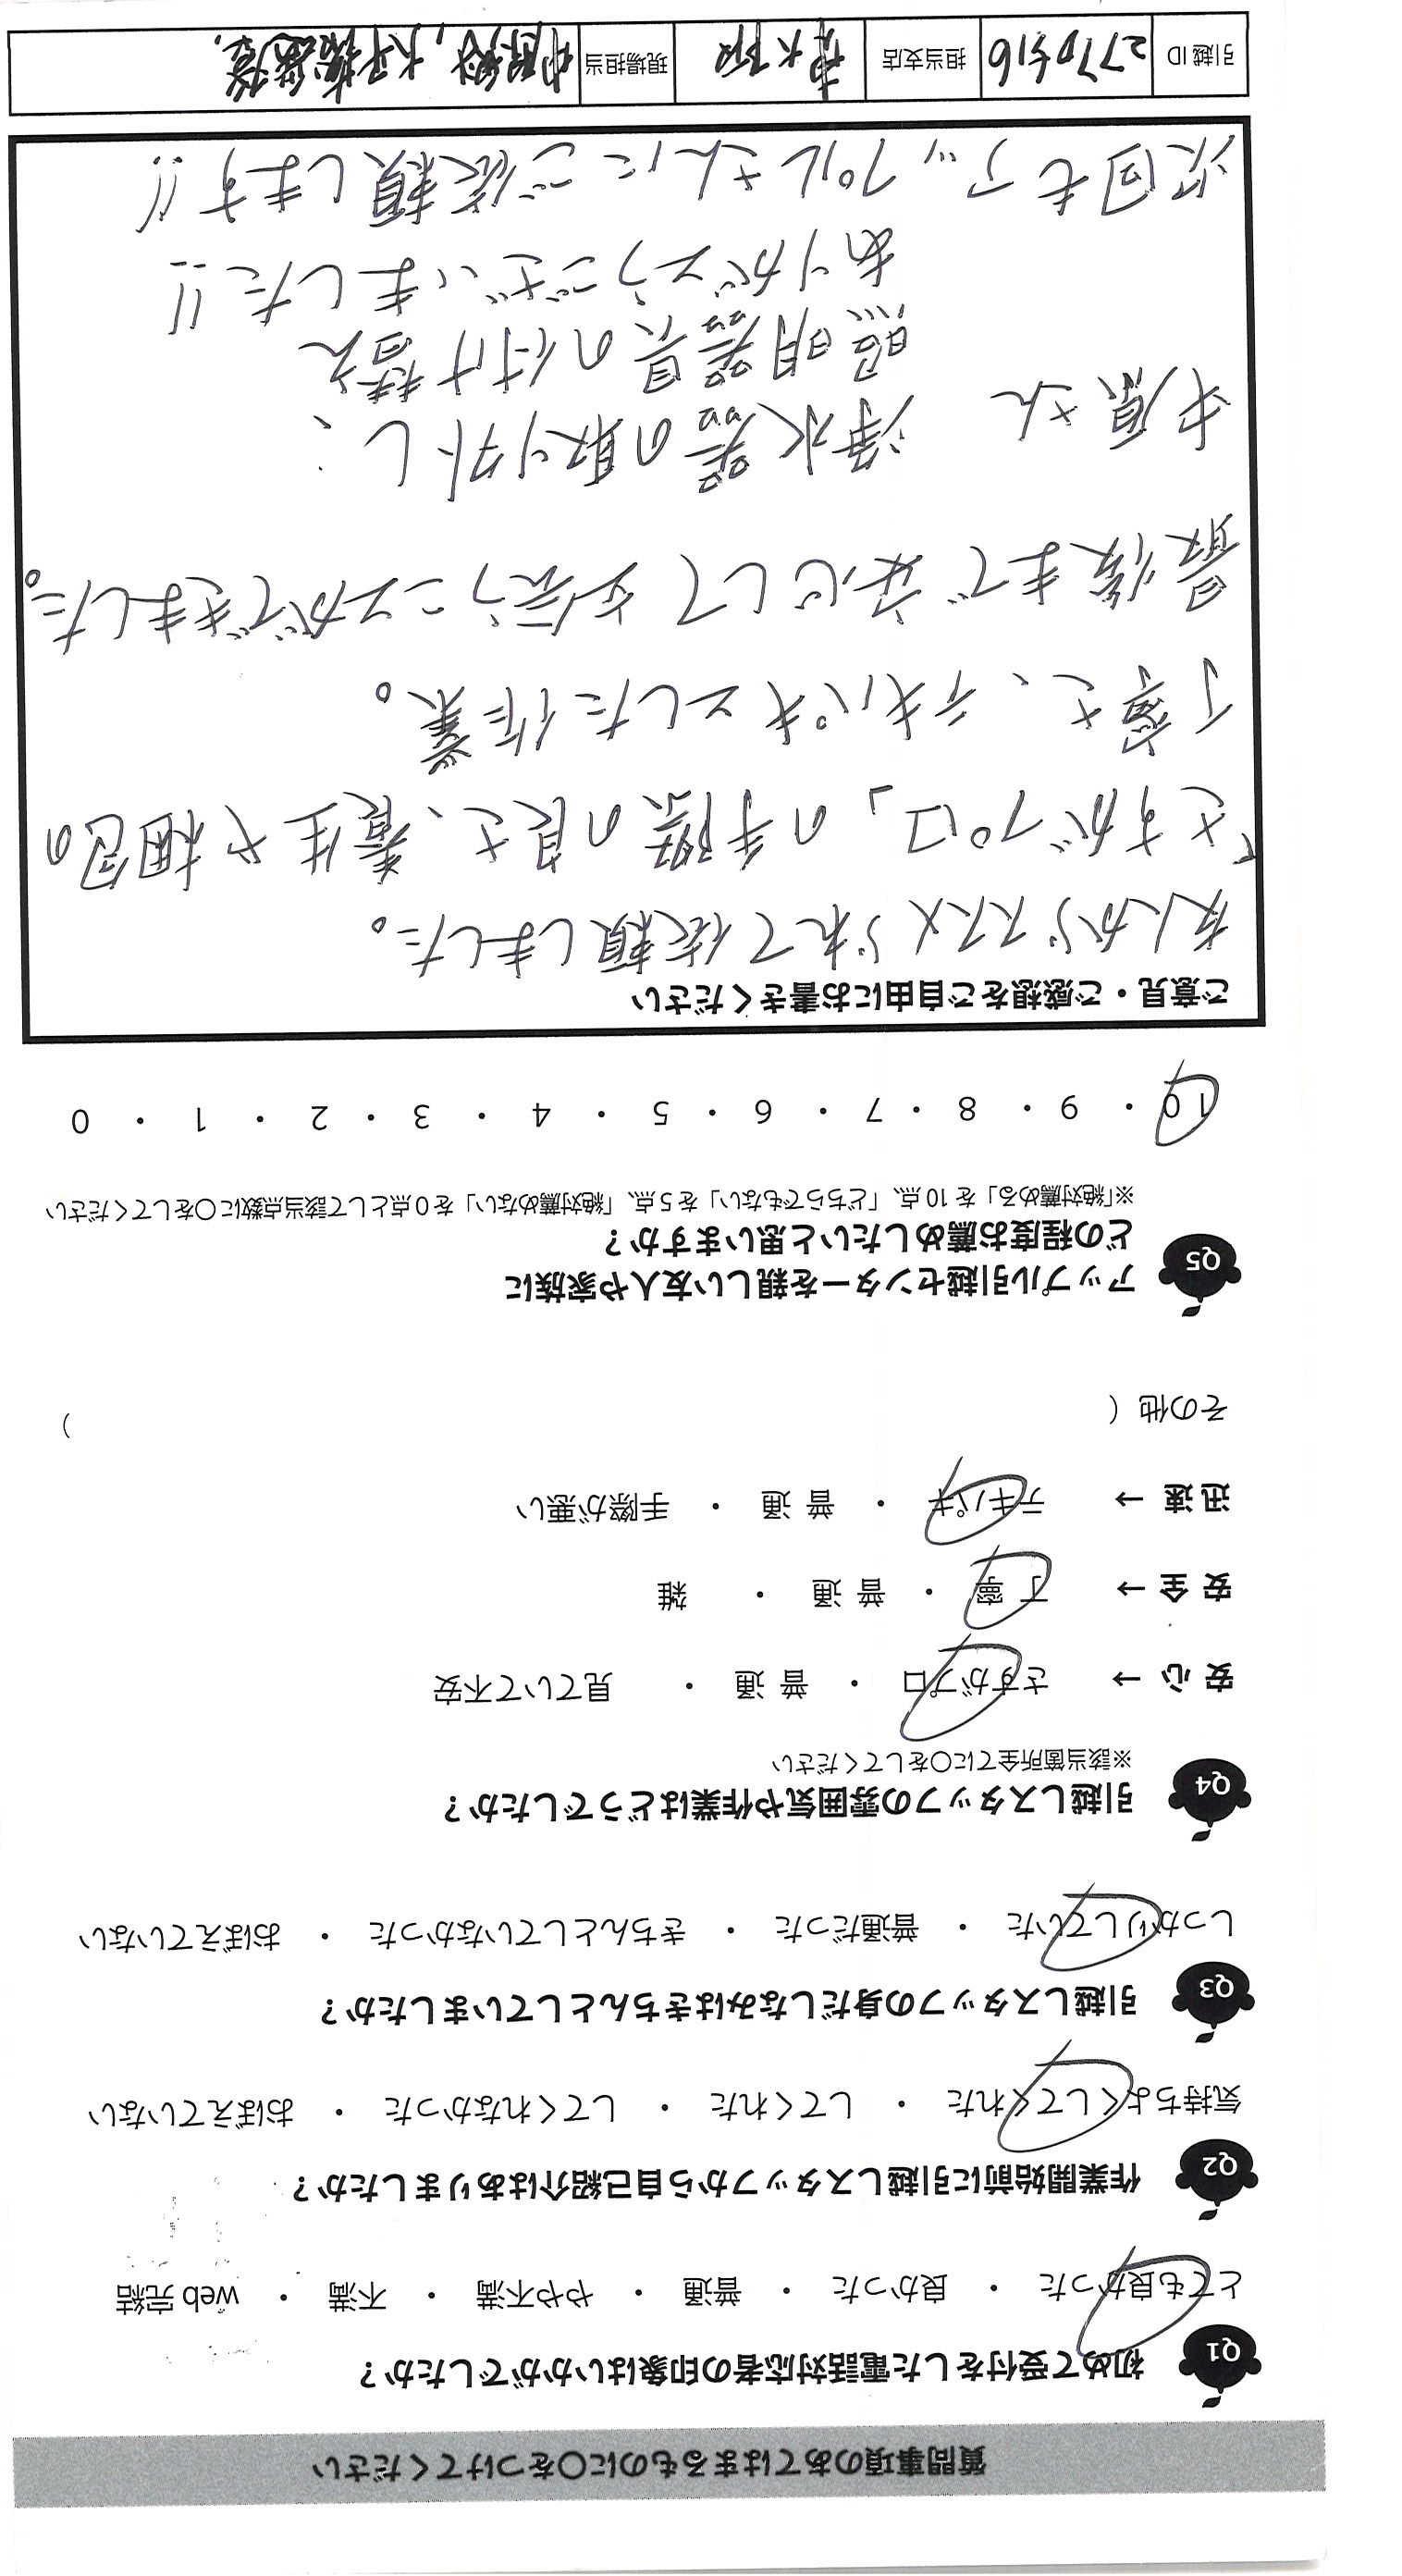 質問事項のあてはまるものに〇をつけてください
Q1 初めて受付をした電話対応者の印象はいかがでしたか？
とても良かった ・ 良かった ・ 普通 ・ やや不満 ・ 不満 ・ web 完結
Q2 作業開始前に引越しスタッフから自己紹介はありましたか？
気持ちよくしてくれた ・ してくれた ・ してくれなかった ・ おぼえていない
Q3 引越しスタッフの身だしなみはきちんとしていましたか？
しっかりしていた ・ 普通だった ・ きちんとしていなかった ・ おぼえていない
Q4 引越しスタッフの雰囲気や作業はどうでしたか？
※該当箇所全てに〇をしてください
安 心 → さすがプロ ・ 普 通 ・ 見ていて不安
安 全 → 丁 寧 ・ 普 通 ・ 雑
迅 速 → テキパキ ・ 普 通 ・ 手際が悪い
その他（ ）
Q5 アップル引越センターを親しい友人や家族に
どの程度お薦めしたいと思いますか？
※「絶対薦める」を 10 点、「どちらでもない」を 5 点、「絶対薦めない」を 0 点として該当点数に〇をしてください
10 ・ 9 ・ 8 ・ 7 ・ 6 ・ 5 ・ 4 ・ 3 ・ 2 ・ 1 ・ 0
ご意見・ご感想をご自由にお書きください
友人からススメられて依頼しました。
「さすがプロ」の手際の良さ、養生や梱包の
丁寧さ、テキパキとした作業。
最後まで安心してお会うことができました。
さん 浄水器の取り外し、
照明器具の付け替え
ありがとうございました!!
次回もアップルさんにご依頼します!!
引越 ID 担当支店 現場担当